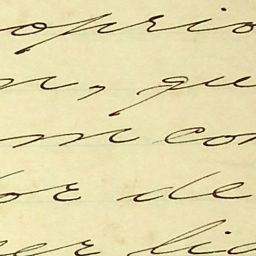 oprio
n, que
m con
dor de
er lid